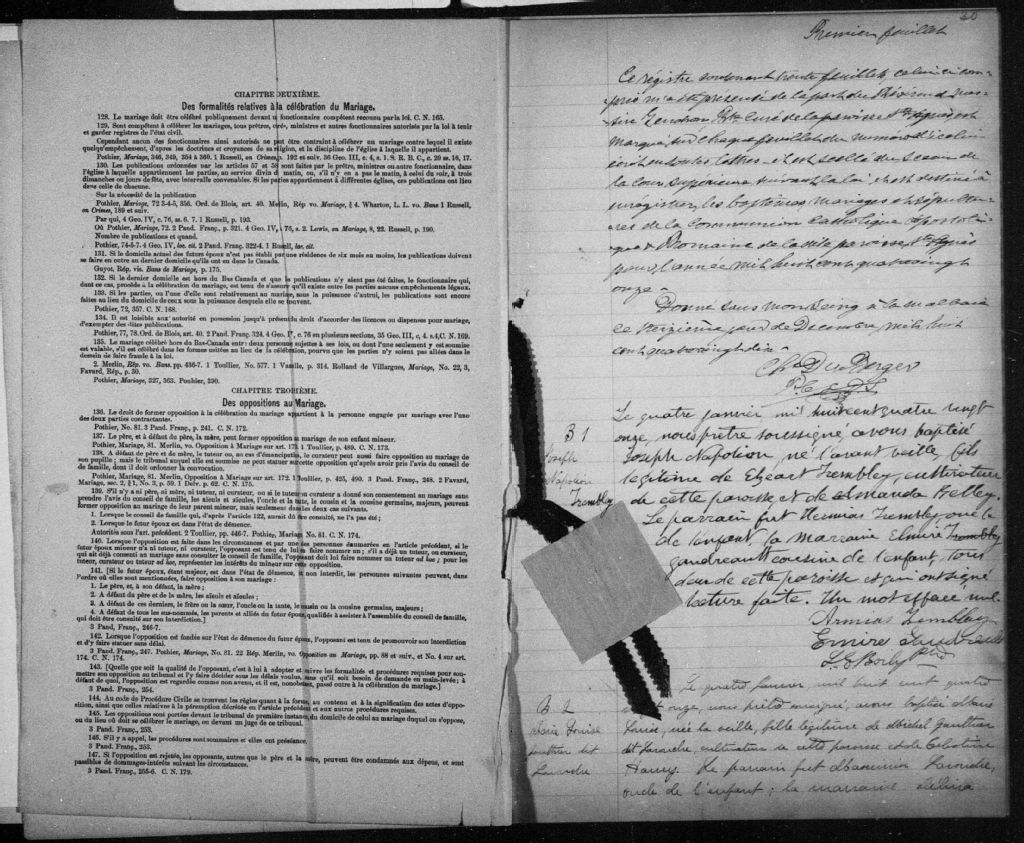 CHAPITRE DEUXIÈME.
Des formalités relatives à la célébration du Mariage.
128. Le mariage doit être célébré publiquement devant un fonctionnaire compétent reconnu par la loi. C. N. 165.
129. Sont compétents à célébrer les mariages, tous prêtres, curé, ministres et autres fonctionnaires autorisés par la loi à tenir
et garder registres de l'état civil.
Cependant aucun des fonctionnaires ainsi autorisés ne peut être contraint à célébrer un mariage contre lequel il existe
quelqu'empêchement, d'après les doctrines et croyances de sa religion, et la discipline de l'église à laquelle il appartient.
Pothier, Mariage, 346, 349, 354 à 360. 1 Russell, on Crimes, p. 192 et suiv. 36 Geo. III, c. 4, s. 1. S. R. B. C., c. 20 ss. 16, 17.
130. Les publications ordonnées par les articles 57 et 58 sont faites par le prêtre, ministres ou autre fonctionnaire, dans
l'église à laquelle appartiennent les parties, au service divin du matin, ou, s'il n'y en a pas le matin, à celui du soir, à trois
dimanches ou jours de fête, avec intervalle convenables. Si les parties appartiennent à différentes églises, ces publications ont lieu
dans celle de chacune.
Sur la nécessité de la publication
Pothier, Mariage, 72 3-4-5, 356. Ord. de Blois, art. 40. Merlin, Rép vo. Mariage, § 4. Wharton, L. L. vo. Bans 1 Russell,
on Crimes, 189 et suiv.
Par qui, 4 Geo. IV, c. 76, ss. 6. 7. 1 Russell, p. 193.
Où Pothier, Mariage, 72. 2 Pand. Franç., p. 321. 4 Geo. IV, c. 76, s. 2. Lewis, on Mariage, 8, 22. Russell, p. 190.
Nombre de publications et quand.
Pothier, 74-5-7. 4 Geo. IV, loc. cit. 2 Pand. Franç. 322-4. 1 Russell, loc. cit.
131. Si le domicile actuel des futurs époux n'est pas établi par une résidence de six mois au moins, les publications doivent
se faire en outre au dernier domicile qu'ils ont eu dans le Canada.
Guyot, Rép. vis. Bans de Mariage, p. 175.
132. Si le dernier domicile est hors du Bas-Canada et que la publications n'y aient pas été faites, le fonctionnaire qui,
dans ce cas, procède à la célébration du mariage, est tenu de s'assurer qu'il existe entre les parties aucuns empêchements légaux.
133. Si les parties, ou l'une d'elle sont relativement au mariage, sous la puissance d'autrui, les publications sont encore
faites au lieu du domicile de ceux sous la puissance desquels elle se trouvent.
Pothier, 72, 357. C. N. 168.
134. Il est loisible aux autorités en possession jusqu'à présent du droit d'accorder des licences ou dispenses pour mariage,
d'exempter des dites publications.
Pothier, 77, 78. Ord. de Blois, art. 40. 2 Pand. Franç. 324. 4 Geo. IV, c. 76 en plusieurs sections, 35 Geo. III, c. 4, s.4, C. N. 169.
135. Le mariage célébré hors du Bas-Canada entre deux personne sujettes à ses lois, ou dont l'une seulement y est soumise
est valable, s'il est célébré dans les formes usitées au lieu de la célébration, pourvu que les parties n'y soient pas allées dans le
dessein de faire fraude à la loi.
2. Merlin, Rép. vo. Bans. pp. 436-7. 1 Toullier, No. 577. 1 Vazille, p. 314. Rolland de Villargues, Mariage, No. 22, 3,
Favard, Rép., p. 30.
Pothier, Mariage, 327, 363. Pouhier, 290.
CHAPITRE TROISIÈME.
Des oppositions au Mariage.
136. Le droit de former opposition à la célébration du mariage appartient à la personne engagée par mariage avec l'une
des deux parties contractantes.
Pothier, No. 81. 3 Pand. Franç., p. 241. C. N. 172.
137. Le père, et à défaut du père, la mère, peut former opposition au mariage de son enfant mineur.
Pothier, Mariage, 81. Merlin, vo. Opposition à Mariage sur art. 173. 1 Toullier, p. 489. C. N. 173.
138. A défaut de père et de mère, le tuteur ou, au cas d'émancipation, le curateur peut aussi faire opposition au mariage de
son pupille; mais le tribunal auquel elle est soumise ne peut statuer sur cette opposition qu'après avoir pris l'avis du conseil
de famille, dont il doit ordonner la convocation.
Pothier, Mariage, 81. Merlin, Opposition à Mariage sur art. 172. 1 Toullier, p. 425, 490. 3 Pand. Franç., 248. 2 Favard,
Mariage, sec. 2, § 1, No. 3, p. 59. 1 Delv. p. 62. C. N. 175.
139. S'il n'y a ni père, ni mère, ni tuteur, ni curateur, ou si le tuteur ou curateur a donné son consentement au mariage sans
prendre l'avis du conseil de famille, les aïeuls et aïeules, l'oncle et la tante, le cousin et la cousine germains, majeurs, peuvent
former opposition au mariage de leur parent mineur, mais seulement dans les deux cas suivants.
1. Lorsque le conseil de famille qui, d'après l'article 122, aurait dû être consulté, ne l'a pas été;
2. Lorsque le futur époux est dans l'état de démence.
Autorités sous l'art. précédent. 2 Toullier, pp. 446-7. Pothier, Mariage No. 81. C. N. 174.
140. Lorsque l'opposition est faite dans les circonstances et par une des personnes énumérées en l'article précédent, si le
futur époux mineur n'a ni tuteur, ni curateur, l'opposant est tenu de lui en faire nommer un; s'il a déjà un tuteur, ou curateur,
qui ait déjà consenti au mariage sans consulter le conseil de famille, l'opposant doit lui faire nommer un tuteur ad hoc; pour les
tuteur, curateur ou tuteur ad hoc, représenter les intérêts du mineur sur cette opposition.
141. [Si le futur époux, étant majeur, est dans l'état de démence, et non interdit, les personnes suivantes peuvent, dans
l'ordre où elles sont mentionnées, faire opposition à son mariage:
1. Le père, et, à son défaut, la mère;
2. A défaut du père et de la mère, les aïeuls et aïeules;
3. A défaut de ces derniers, le frère ou la sœur, l'oncle ou la tante, le cousin ou la cousine germains, majeurs;
4. A défaut de tous les sus-nommés, les parents et alliés du futur époux, qualifiés à assister à l'assemblée du conseil de famille,
qui doit être consulté sur son interdiction.]
3 Pand. Franç., 246-7.
142. Lorsque l'opposition est fondée sur l'état de démence du futur époux, l'opposant est tenu de promouvoir son interdiction
et d'y faire statuer sans délai.
3 Pand. Franç., 247. Pothier, Mariage, No. 81. 22 Rép. Merlin, vo. Opposition au Mariage, pp. 88 et suiv., et No. 4 sur art.
174. C. N. 174.
143. [Quelle que soit la qualité de l'opposant, c'est à lui à adopter et suivre les formalités et procédures requises pour sou-
mettre son opposition au tribunal et l'y faire décider sous les délais voulus, sans qu'il soit besoin de demande en main-levée; à
défaut de quoi, l'opposition est regardée comme non avenue, et il est, nonobstant, passé outre à la célébration du mariage.]
3 Pand. Franç., 254.
144. Au code de Procédure Civile se trouvent les règles quant à la forme, au contenu et à la signification des actes d'oppo-
sition, ainsi que celles relatives à la péremption décrétée en l'article précédent et aux autres procédures requises.
145. Les oppositions sont portées devant le tribunal de première instance, du domicile de celui au mariage duquel on s'oppose,
ou du lieu où doit se célébrer le mariage, ou devant un juge de ce tribunal.
3 Pand. Franç., 253.
146. S'il y a appel, les procédures sont sommaires et elles ont préséance.
3 Pand. Franç., 253.
147. Si l'opposition est rejetée, les opposants, autres que le père et la mère, peuvent être condamnés aux dépens, et sont
passibles de dommages-intérêts suivant les circonstances.
3 Pand. Franç., 255-6. C. N. 179.
Premier feuillet
Ce régistre contenant trente feuillets, celui-ci com-
pris m'a été présenté de la part du Révérend mes-
sire Gendron Ptre curé de la paroisse Ste Agnès est
marqué sur chaque feuillet du numéro d'icelui
écrit en toutes lettres et est scellé du sceau de
la Cour Supérieure suivant la loi, et est destiné à
enregistrer les baptêmes mariages et sépultu-
res de la communion catholique apostoli-
que & Romaine de la dite paroisse Ste Agnès
pour l'année mil huit cent quatre vingt
onze.
Donné sous mon seing à la Malbaie
ce treizième jour de Décembre mil huit
cent quatre vingt dix
Chs Du Berger
P. C. S.
B 1
Joseph
Napoléon
Trembley
Le quatre janvier mil huit cent quatre vingt
onze, nous prêtre soussigné, avons baptisé
Joseph Napoléon, né l'avant veille, fils
légitime de Elzéar Trembley, cultivateur
de cette paroisse et de Amanda Belley.
Le parrain fut Hermias Trembley, oncle
de l'enfant, la marraine Elmire Trembley
Gaudreault cousine de l'enfant, tous
deux de cette paroisse et qui ont signé
lecture faite. Un mot effacé nul.
Armias Trembley
Emire Gaudreault
Ptre
B. 2
Marie Louise
Gauthier dit
Larouche
Le quatre janvier mil huit cent quatre
vingt onze, nous prêtre soussigné, avons baptisé Marie
Louise, née la veille, fille légitime de Michel Gauthier
dit Larouche, cultivateur de cette paroisse et de Célestine
Harvey. Le parrain fut Maximin Larouche,
oncle de l'enfant; la marraine Délina